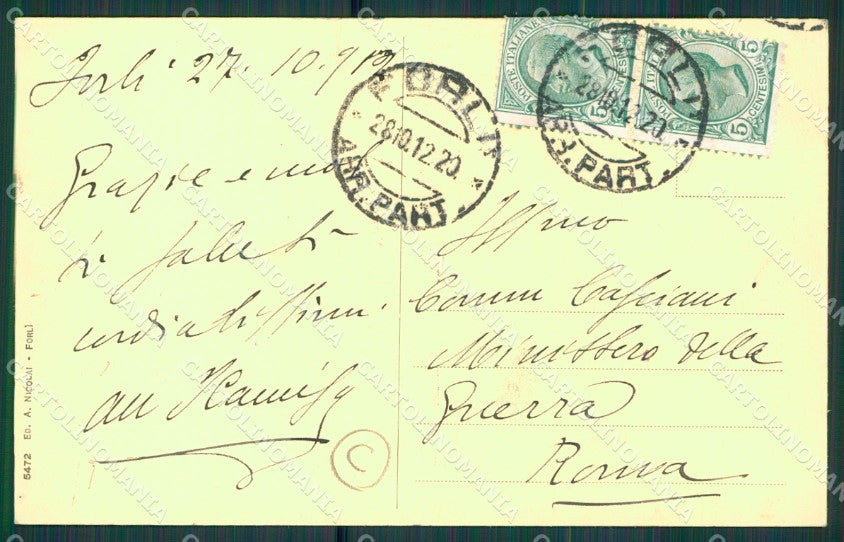 Forlì 27. 10. 912
Grazie e
ti saluti
cordialissimi
5472 ED. A. NICOLAI - FORLÌ
C
FORLÌ
28.10.12.20.
ARR. PART.
FORLÌ
28.10.12.20.
ARR. PART.
POSTE ITALIANE
5 CENTESIMI 5
5 CENTESIMI 5
Comm Casciani
Ministero della
Guerra
Roma
CARTOLINOMANIA